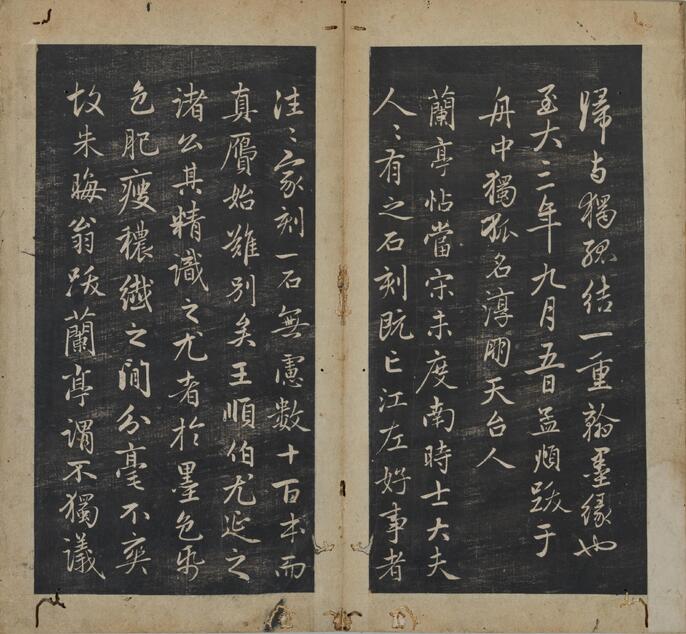 歸与獨孤結一重翰墨緣也
至大三年九月五日孟頫跋于
舟中獨孤名淳朋天台人
蘭亭帖當宋未度南時士大夫
人〻有之石刻既亡江左好事者
往〻家刻一石無慮數十百本而
真贋始難別矣王順伯尤延之
諸公其精識之尤者於墨色帋
色肥瘦穠纖之間分毫不爽
故朱晦翁跋蘭亭謂不獨議